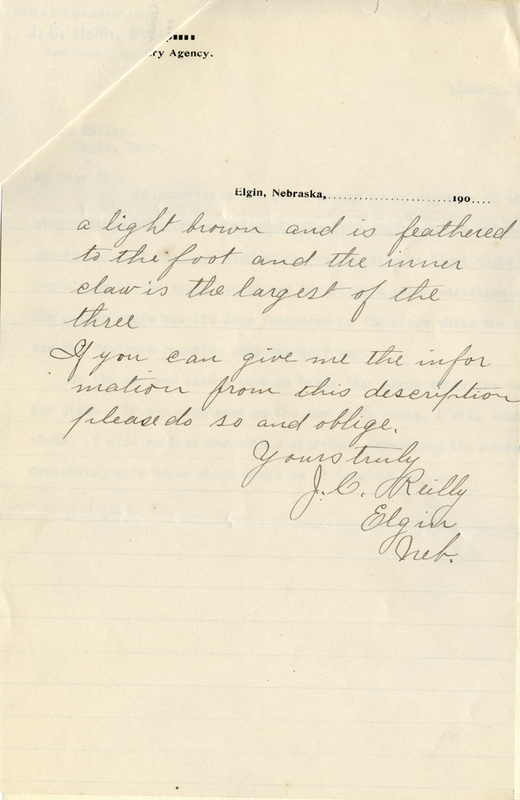 ry Agency.
Elgin, Nebraska,........................190....
a light brown and is feathered
to the foot and the inner
claw is the largest of the
three
If you can give me the infor
mation from this description
please do so and oblige.
Yours truly
J. C. Reilly
Elgin
Neb.